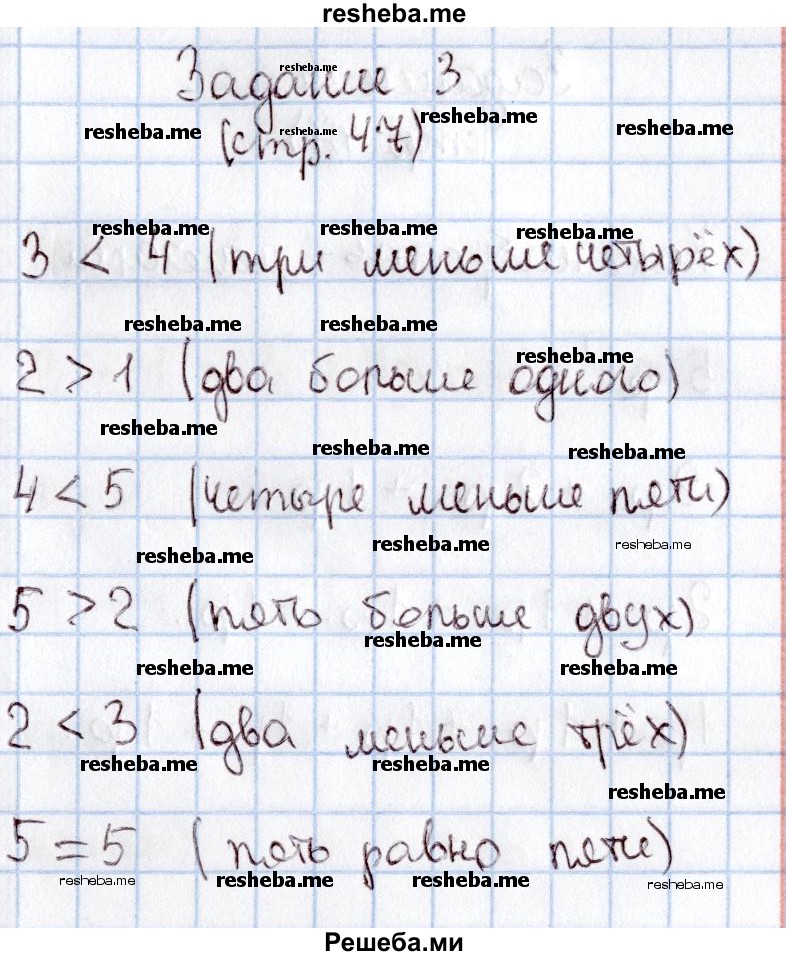 resheba.me
Задание 3
resheba.me
resheba.me resheba.me resheba.me resheba.me
(стр. 47)
resheba.me resheba.me resheba.me
3 < 4 (три меньше четырёх)
resheba.me resheba.me
resheba.me
2 > 1 (два больше одного)
resheba.me resheba.me resheba.me
4 < 5 (четыре меньше пяти)
resheba.me resheba.me resheba.me
5 > 2 (пять больше двух)
resheba.me resheba.me resheba.me
2 < 3 (два меньше трёх)
resheba.me resheba.me resheba.me
5 = 5 (пять равно пяти)
resheba.me resheba.me resheba.me resheba.me
Решеба.ми